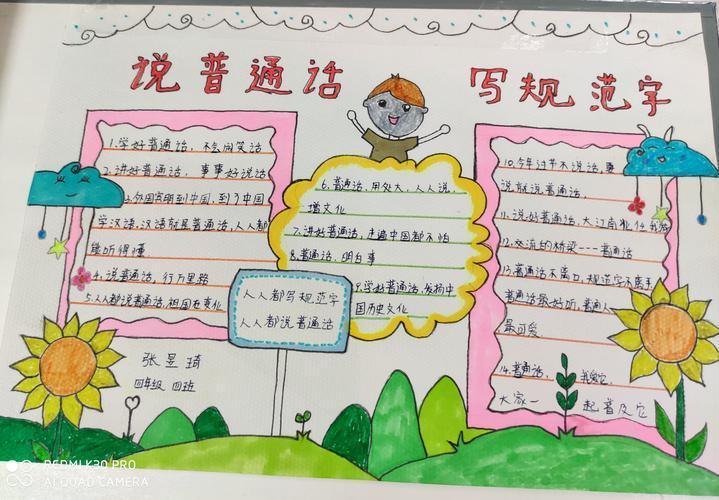 说普通话
写规范字
1.学好普通话,不会闹笑话
2.讲好普通话,事事好说话
3.外国宾朋到中国,到了中国
学汉语,汉语就是普通话,人人都
能听得懂
4.说普通话,行万里路
5.人人都说普通话,祖国
6.普通话,用处大,人人说,
增文化
7.讲好普通话,走遍中国都不怕
8.普通话,明白事
9.学好普通话,发扬中
国历史文化
人人都写规范字
人人都说普通话
10.今年过节不说话,要
说就说普通话
11.说好普通话,大江南北任我
12.交流的桥梁---普通话
13.普通话不离口,规范字不离手
普通话最好听,普通人
最可爱
14.普通话,我爱它,
大家一起普及它
张昱琦
四年级 四班
REDMI K30 PRO
AI QUAD CAMERA